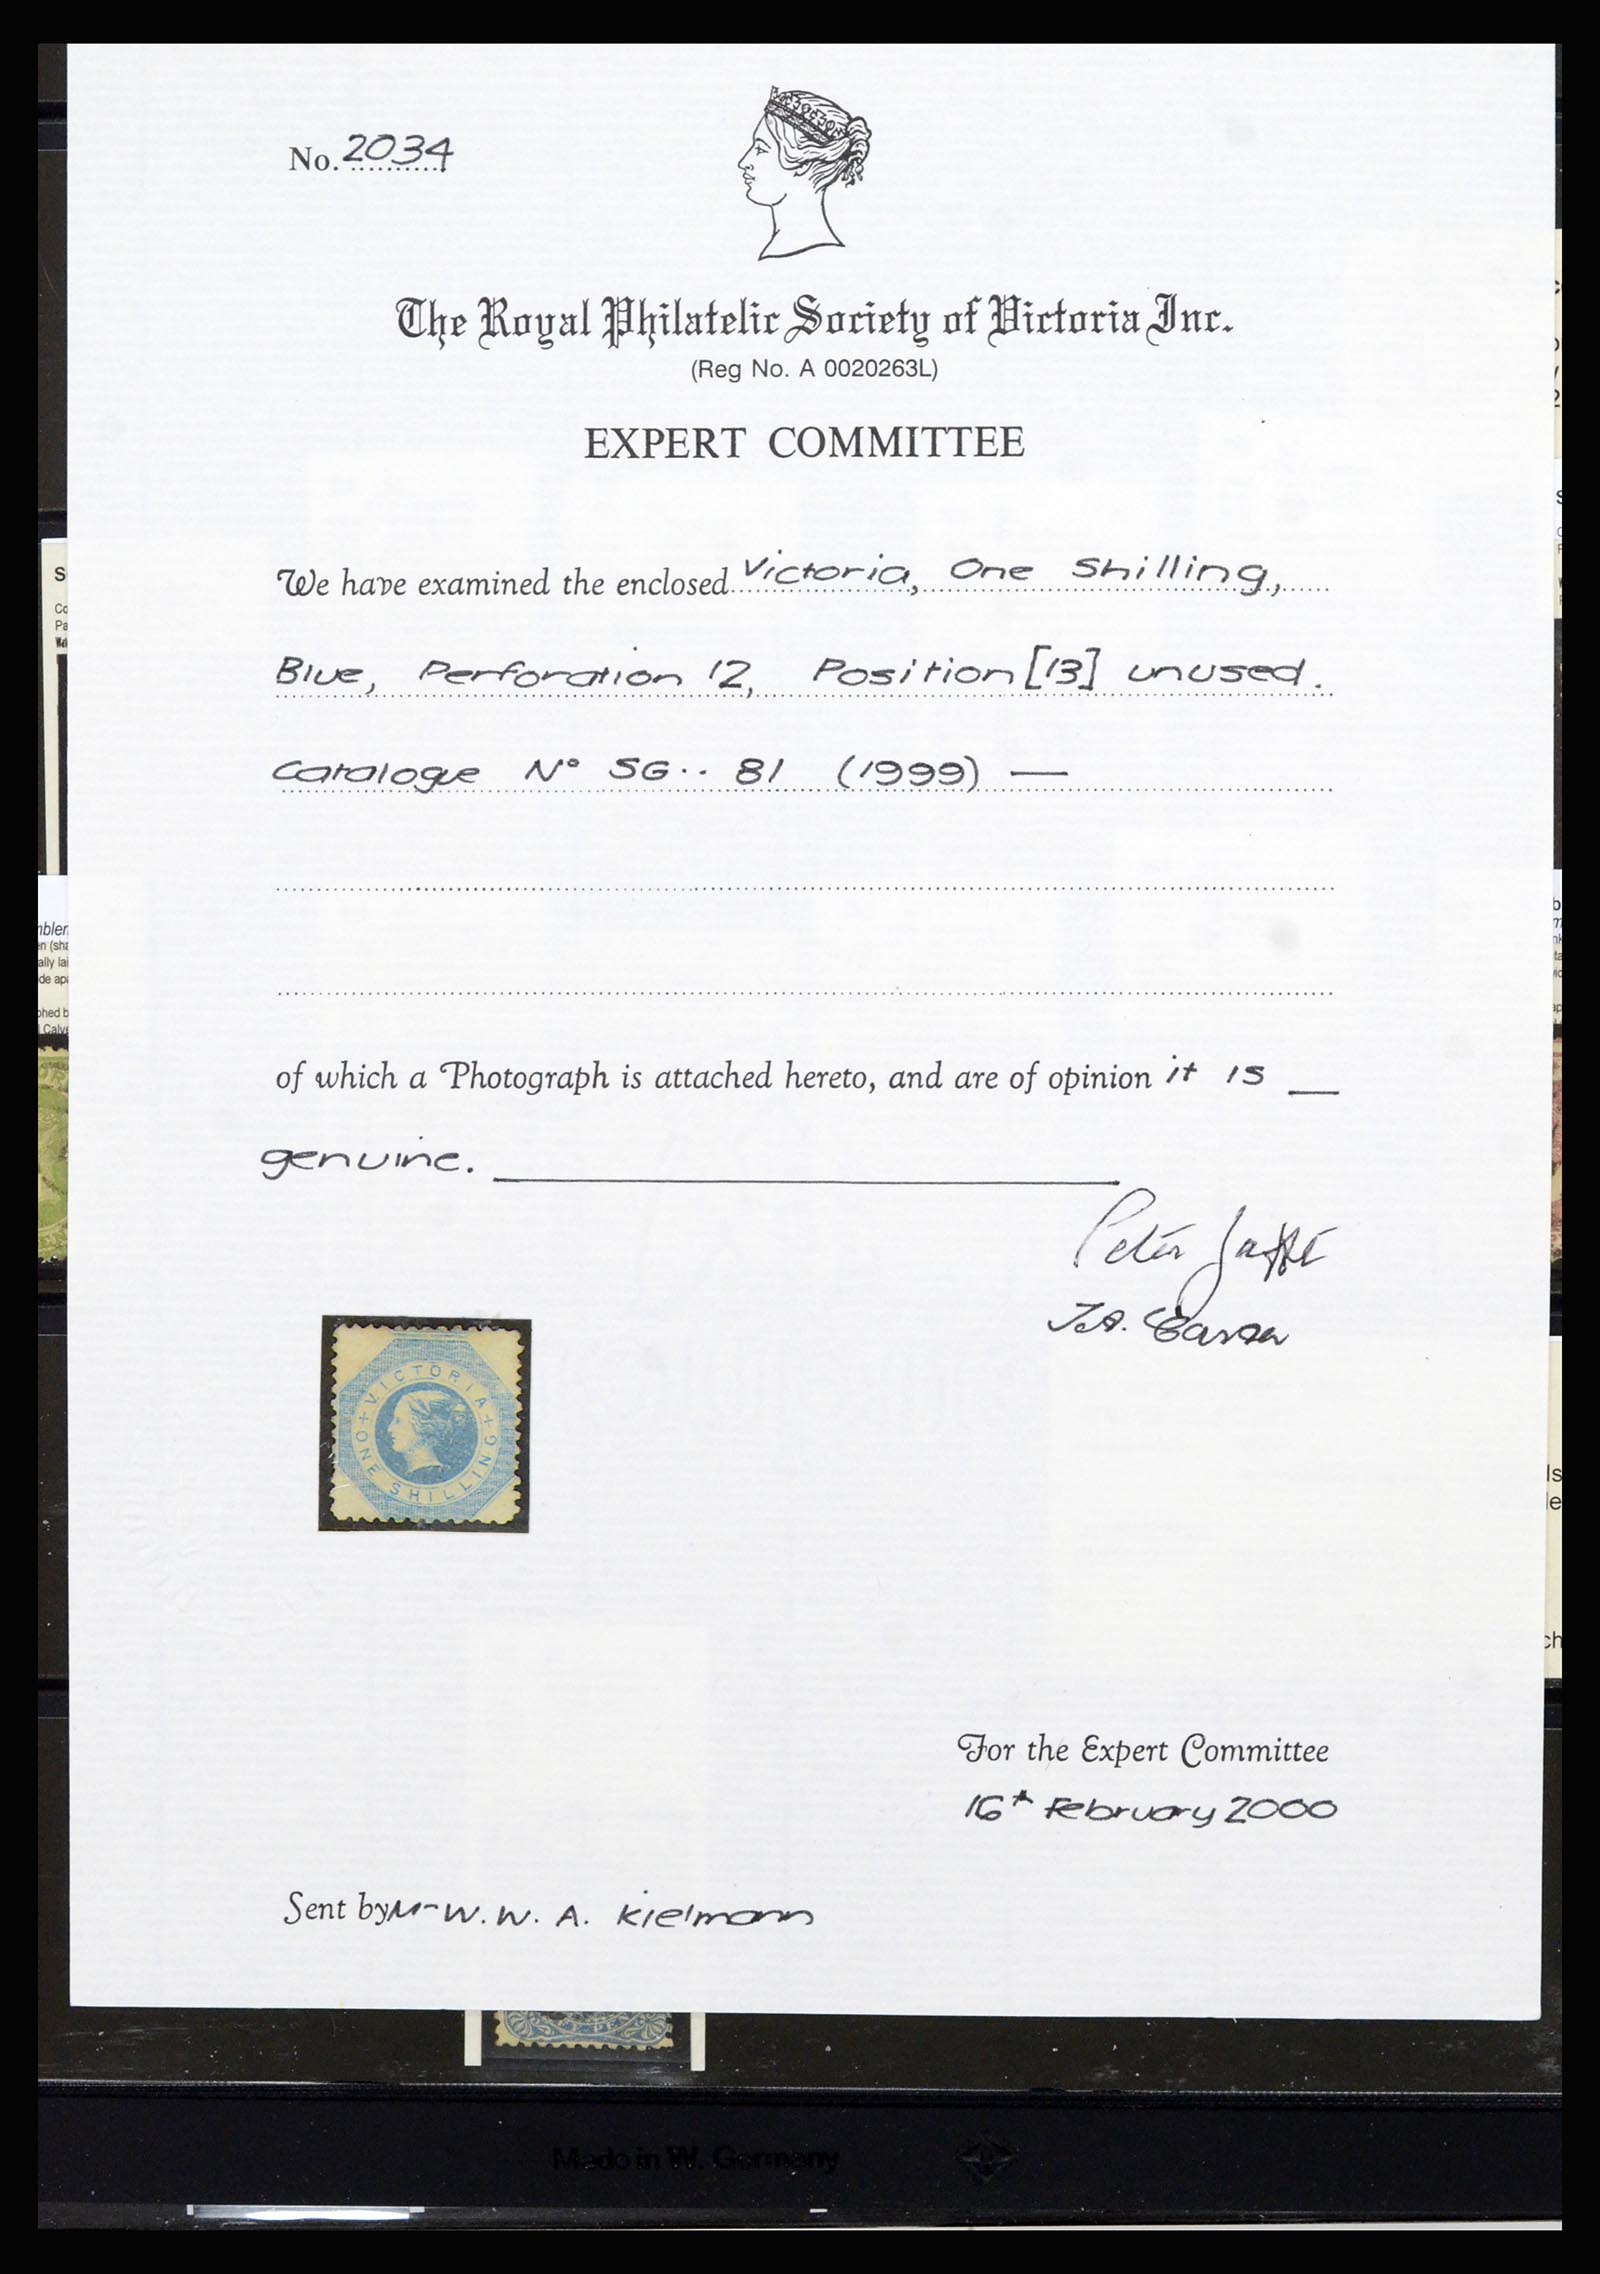 No. 2034
The Royal Philatelic Society of Victoria Inc.
(Reg No. A 0020263L)
EXPERT COMMITTEE
We have examined the enclosed Victoria, One Shilling,
Blue, Perforation 12, Position [13] unused.
Catalogue Nº SG.. 81 (1999) —
of which a Photograph is attached hereto, and are of opinion it is —
genuine.
Peter Jaffé
VICTORIA
ONE SHILLING
For the Expert Committee
16th February 2000
Sent by Mr W. W. A. Kielmann
Made in W. Germany